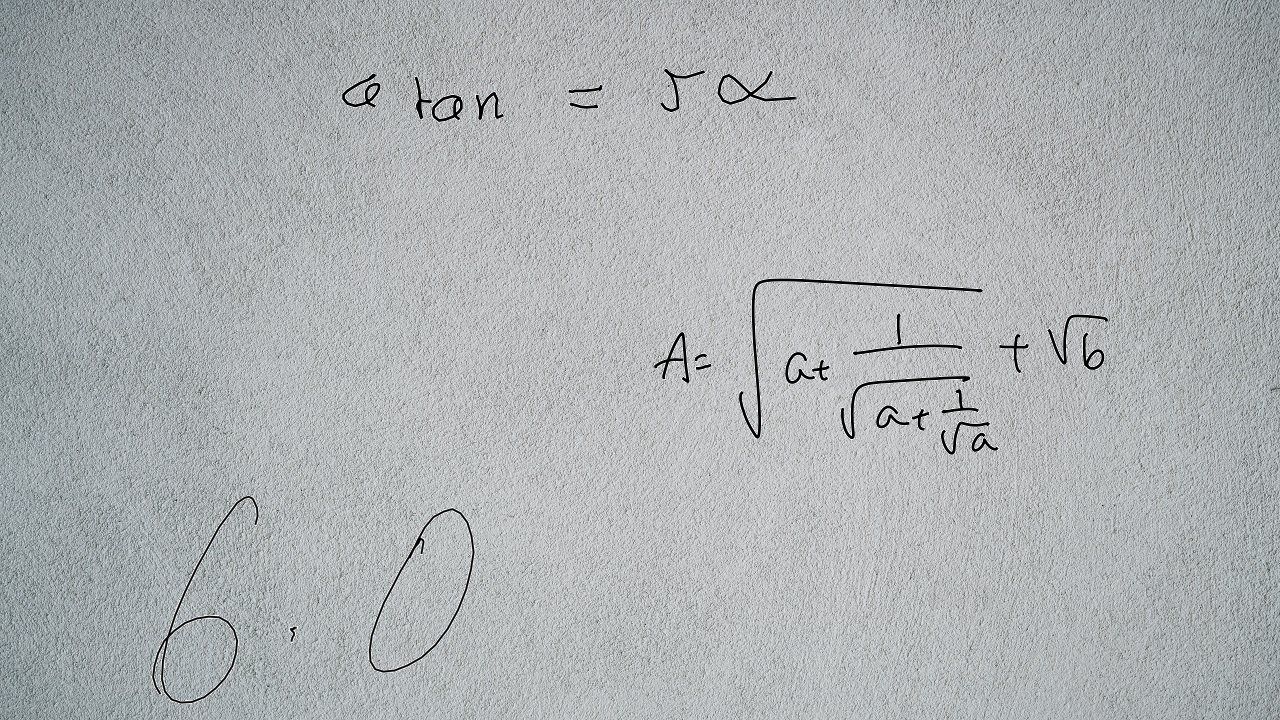 a tan = 5α
A = \sqrt{a + \frac{1}{\sqrt{a + \frac{1}{\sqrt{a}}}}} + \sqrt{b}
6.0